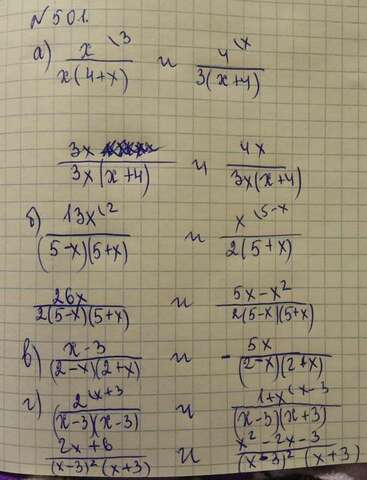 №501.
а) x\3 / x(4+x) и 4\x / 3(x+4)
3x / 3x(x+4) и 4x / 3x(x+4)
б) 13x\2 / (5-x)(5+x) и x\5-x / 2(5+x)
26x / 2(5-x)(5+x) и 5x-x² / 2(5-x)(5+x)
в) x-3 / (2-x)(2+x) и - 5x / (2-x)(2+x)
г) 2\x+3 / (x-3)(x-3) и 1+x\x-3 / (x-3)(x+3)
2x+6 / (x-3)²(x+3) и x²-2x-3 / (x-3)²(x+3)